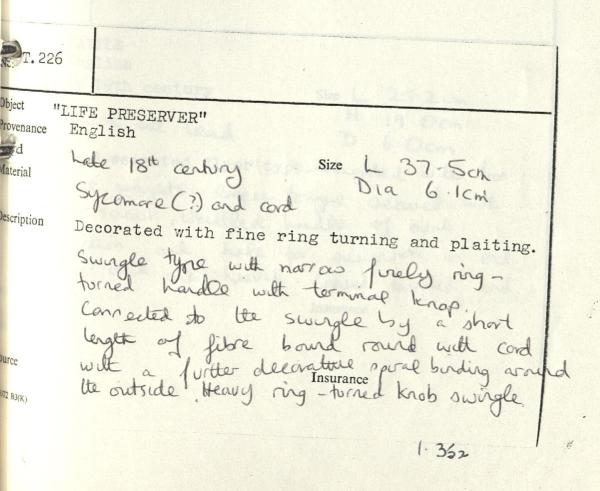 No. T.226
Object "LIFE PRESERVER"
Provenance English
Late 18th century Size L 37.5cm
Material Sycomore (?) and cord Dia 6.1cm
Description Decorated with fine ring turning and plaiting.
Swingle type with narrow finely ring-
turned handle with terminal knop.
Connected to the swingle by a short
length of fibre bound round with cord
with a further decorative spiral binding around
Insurance
the outside. Heavy ring-turned knob swingle
1.352